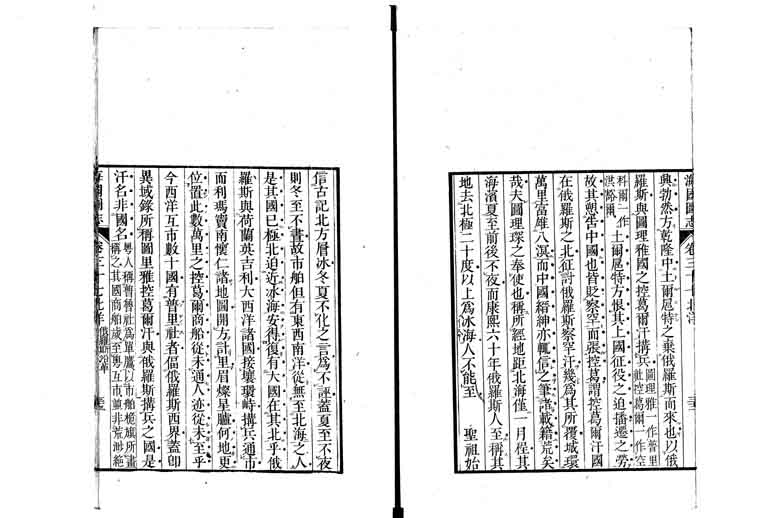 海國圖志 卷三十七 北洋
興勃然方乾隆中土爾扈特之棄俄羅斯而來也以俄
羅斯與圖理雅國之控葛爾汗搆兵圖理雅一作普里社控葛爾一作空
科爾一作洪豁爾土爾扈特方恨其上國征役之迫播遷之勞
故其愬苦中國也皆貶察罕而張控葛謂控葛爾汗國
在俄羅斯之北征討俄羅斯察罕汗幾爲其所覆城環
萬里富雄八溟而中國縉紳亦輒信之筆諸載籍荒矣
哉夫圖理琛之奉使也稱所經地距北海僅一月程其
海濱夏至前後不夜而康熙六十年俄羅斯人至稱其
地去北極二十度以上爲冰海人不能至 聖祖始
信古記北方層冰冬夏不化之言爲不誣蓋夏至不夜
則冬至不晝故市舶但有東西南洋從無至北海之人
是其國已極北迫近冰海安得復有大國在其北乎俄
羅斯與荷蘭英吉利大西洋諸國接壤環峙搆兵通市
而利瑪竇南懷仁諸地圖開方計里眉燦星臚何地更
位置此數萬里之控葛爾商船從未通人迹從未至乎
今西洋互市數十國有普里社者偪俄羅斯西界蓋卽
異域錄所稱圖里雅控葛爾汗與俄羅斯搆兵之國是
汗名非國名粵人稱普魯社爲單鷹以市舶桅旗所畫稱之其國商舶歲至粵互市並非荒渺絶
海國圖志 卷三十七 北洋 俄羅斯沿革